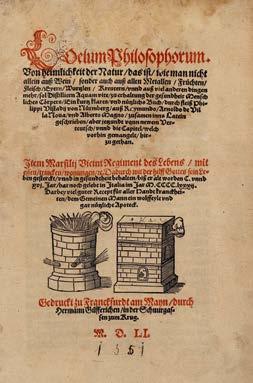 Coelum Philosophorum.
Von heimlichkeit der Natur / das ist / wie man nicht
allein auß Wein / sonder auch auß allen Metallen / Früchten /
Fleisch / Eyern / Wurtzlen / Kreutern / vnnd auß viel andern dingen
mehr / sol Distillieren Aquam vite / zu erhaltung der gesundheit Mensch-
liches Cörpers / Ein kurtz klares vnd nützliche Buch / durch fleiß Phi-
lippi Vlstadij von Nürmberg / auß Reymundo / Arnoldo de Vil
la Noua / vnd Alberto Magno / zusamen inns Latein
geschrieben / aber jetzunde vonn newem Ver-
teutsch / vnnd die Capitel / welch
vorhin gemangelt / hin-
zu gethan.
Item Marsilij Ficini Regiment des Lebens / mit
essen / trincken / wonungen / ꝛc. Dadurch mit der hilff Gottes sein Le-
ben gestreckt / vnnd in gesundtheit behalten / biß er alt worden C. vnnd
Jar / hat noch gelebt in Italia im Jar M. CCCC.
Darbey viel guter Recept für aller Handt kranckhei-
ten / dem Gemeinen Mann ein wolfeyle vnd
gar nützliche Apoteck.
Gedruckt zu Franckfurdt am Mayn / durch
Hermann Gülfferichen / in der Schnurgas-
sen zum Krug.
M. D. LI.
1551